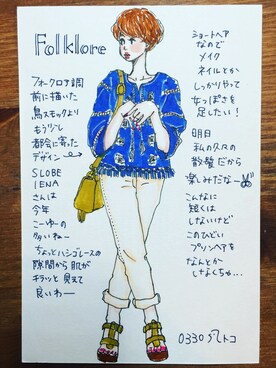 Folklore
フォークロア調
前に描いた
鳥スモックより
もう少し
都会に寄った
デザイン
SLOBE
IENA
さんは
今年
こーゆーの
多いねー
ちょっとハシゴレースの
隙間から肌が
チラッと見えて
良いわー
ショートヘア
なので
メイク
ネイルとか
しっかりやって
女っぽさを
足したい!
明日
私の久々の
散髪だから
楽しみだなー
こんなに
短くは
しないけど
このひどい
プリンヘアを
なんとか
しなくちゃ…
0330
トコ